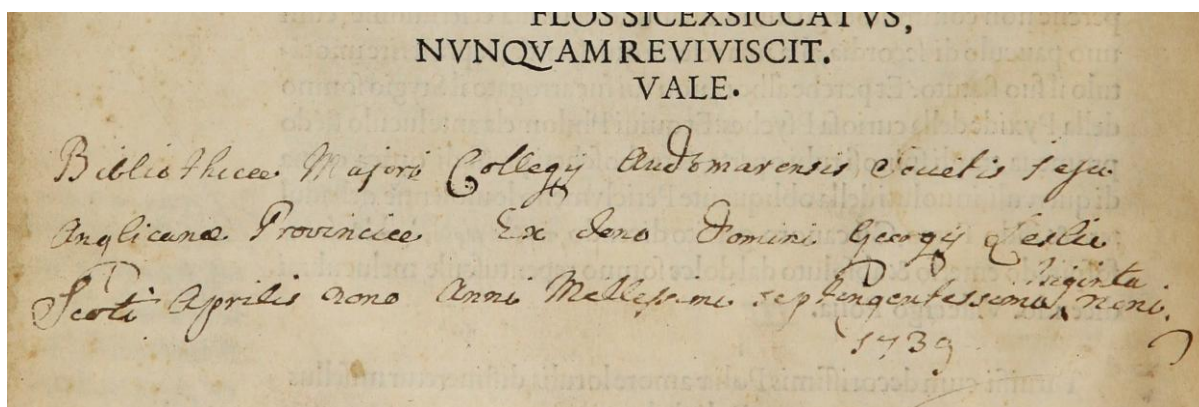 FLOS SIC EXSICCATVS,
NVNQVAM REVIVISCIT.
VALE.
Bibliothecæ Majori Collegij Audomarensis Societis Jesu
Anglicanæ Provinciæ Ex dono Domini Georgij Leslie
Scoti Aprilis nono Anni Mellessimi septengentessimi triginta noni.
1739